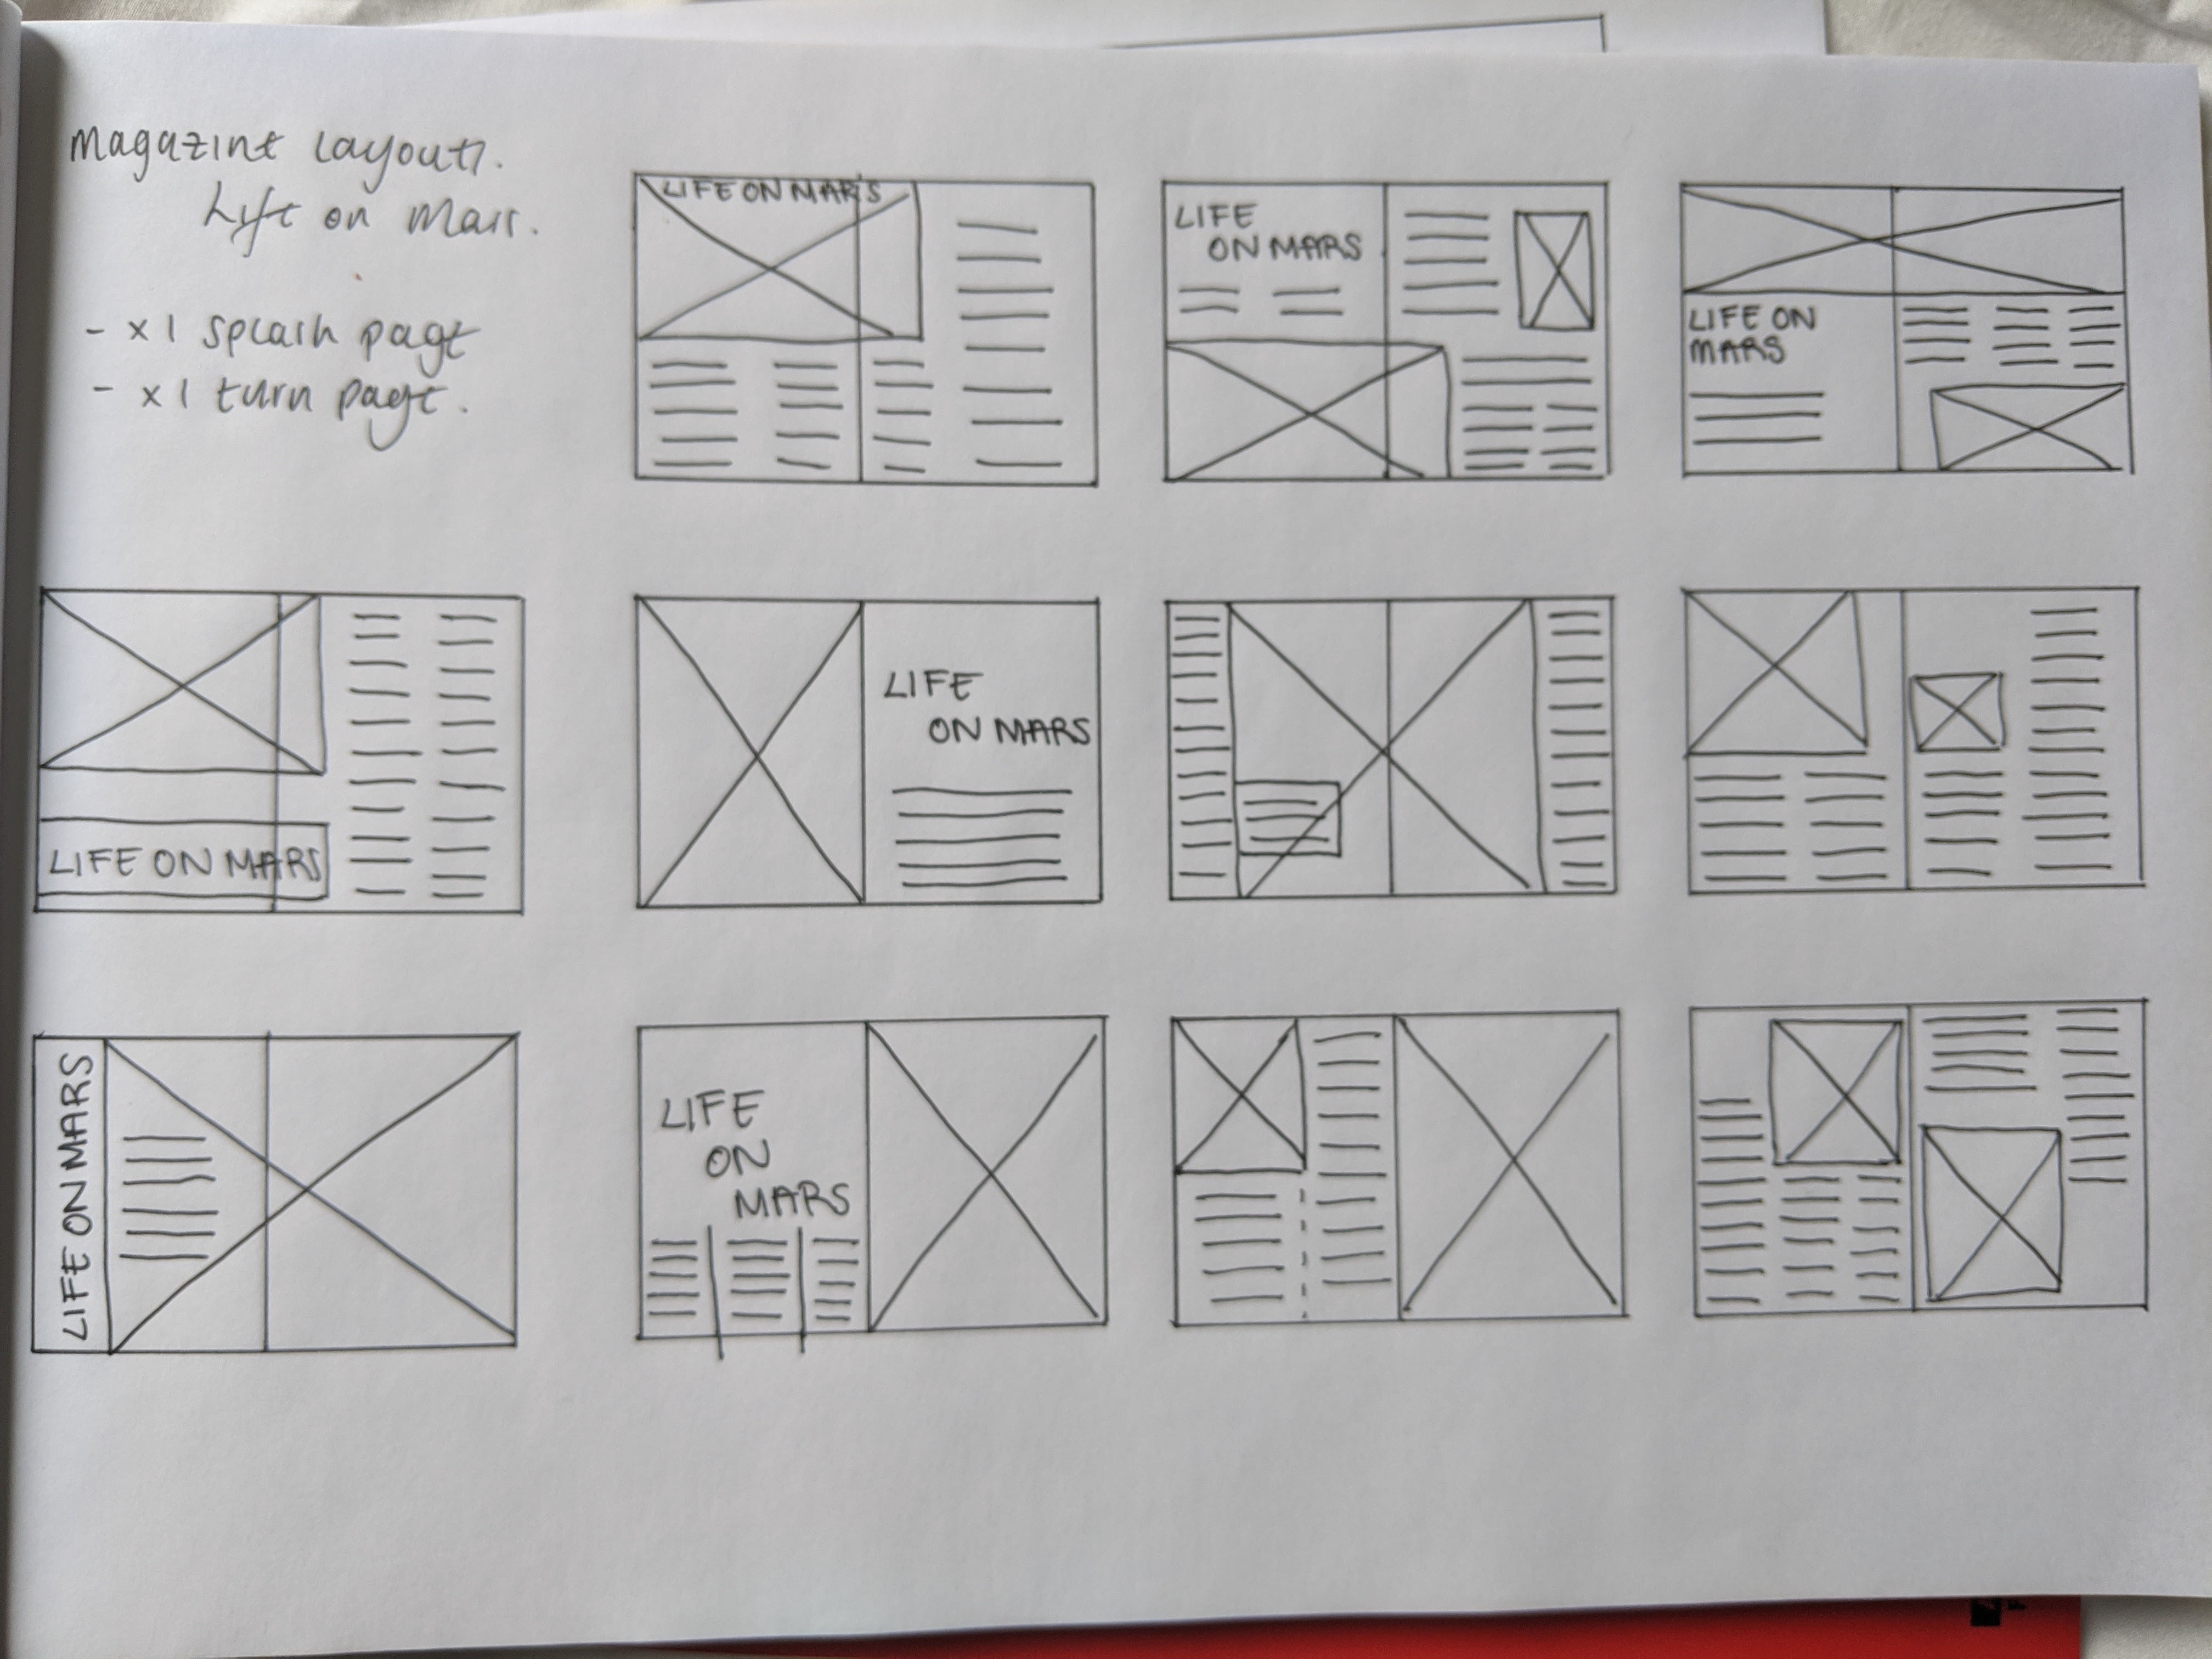 Magazine layouts.
Life on Mars.
- x1 splash page
- x1 turn page.
LIFE ON MARS
LIFE
ON MARS
LIFE ON
MARS
LIFE ON MARS
LIFE
ON MARS
LIFE ON MARS
LIFE
ON
MARS